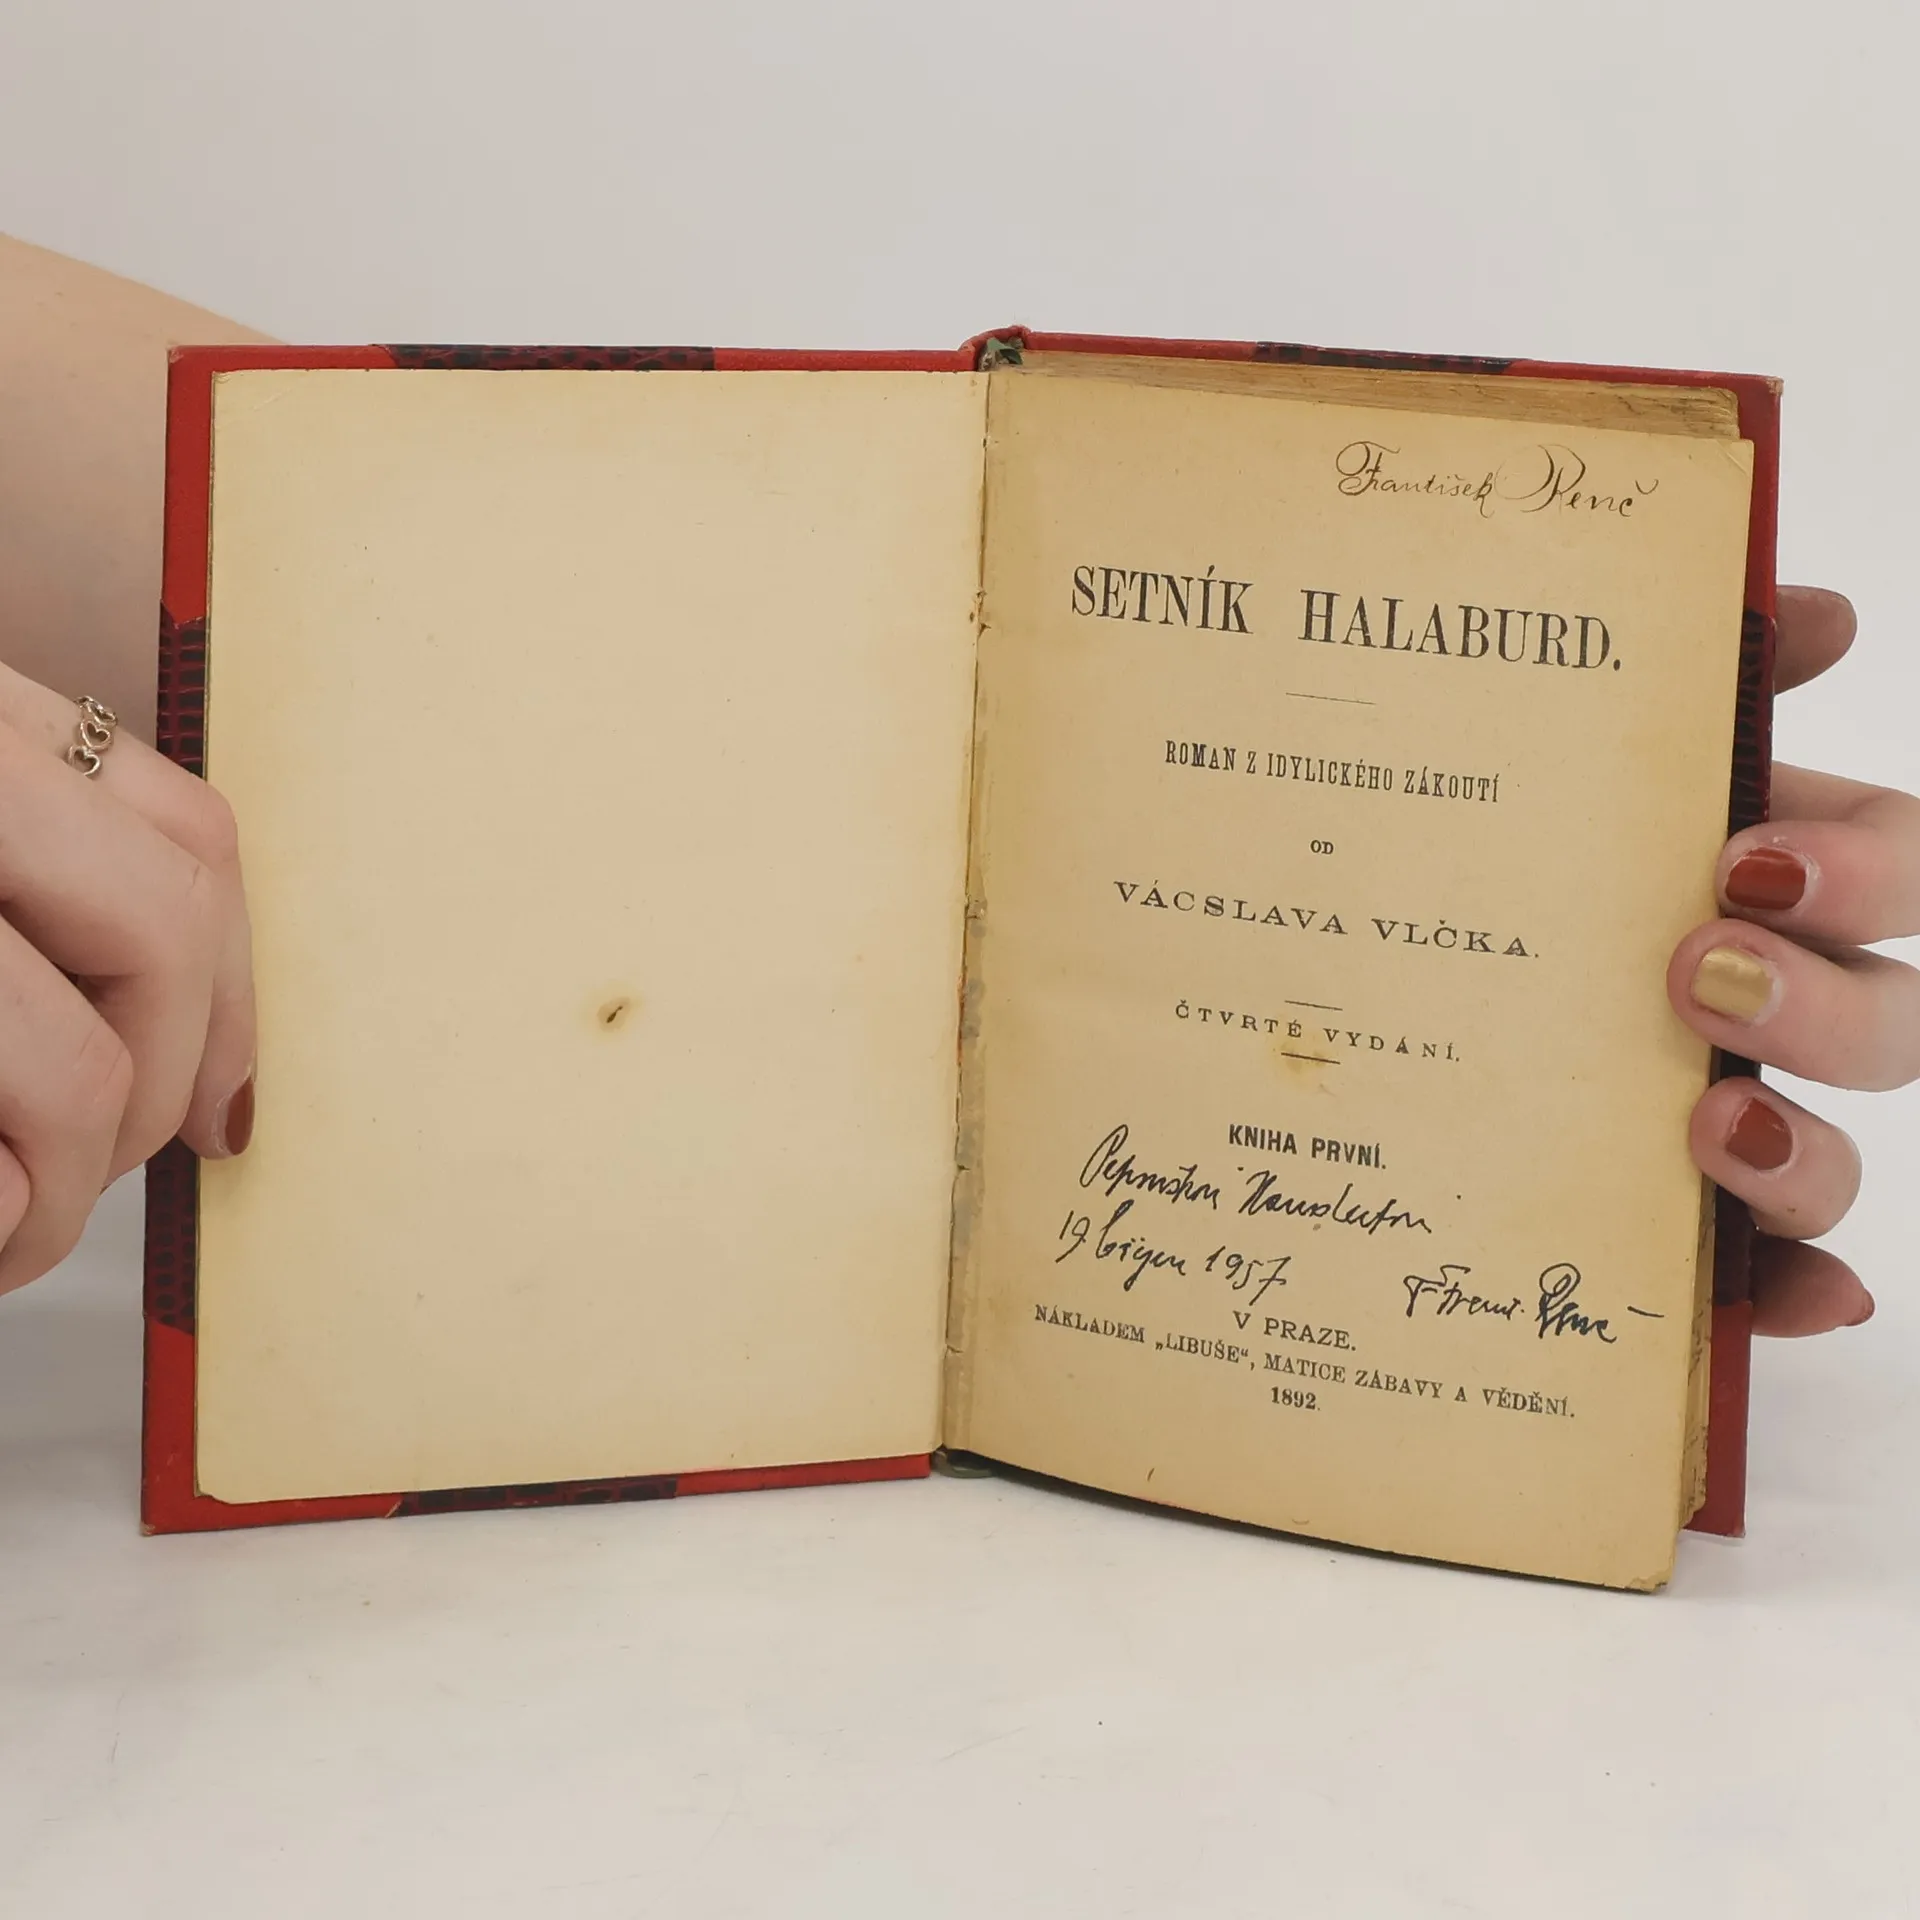 František Renč
SETNÍK HALABURD.
ROMAN Z IDYLICKÉHO ZÁKOUTÍ
OD
VÁCSLAVA VLČKA.
ČTVRTÉ VYDÁNÍ.
KNIHA PRVNÍ.
19. 1957
Renč
V PRAZE.
NÁKLADEM „LIBUŠE“, MATICE ZÁBAVY A VĚDĚNÍ.
1892.